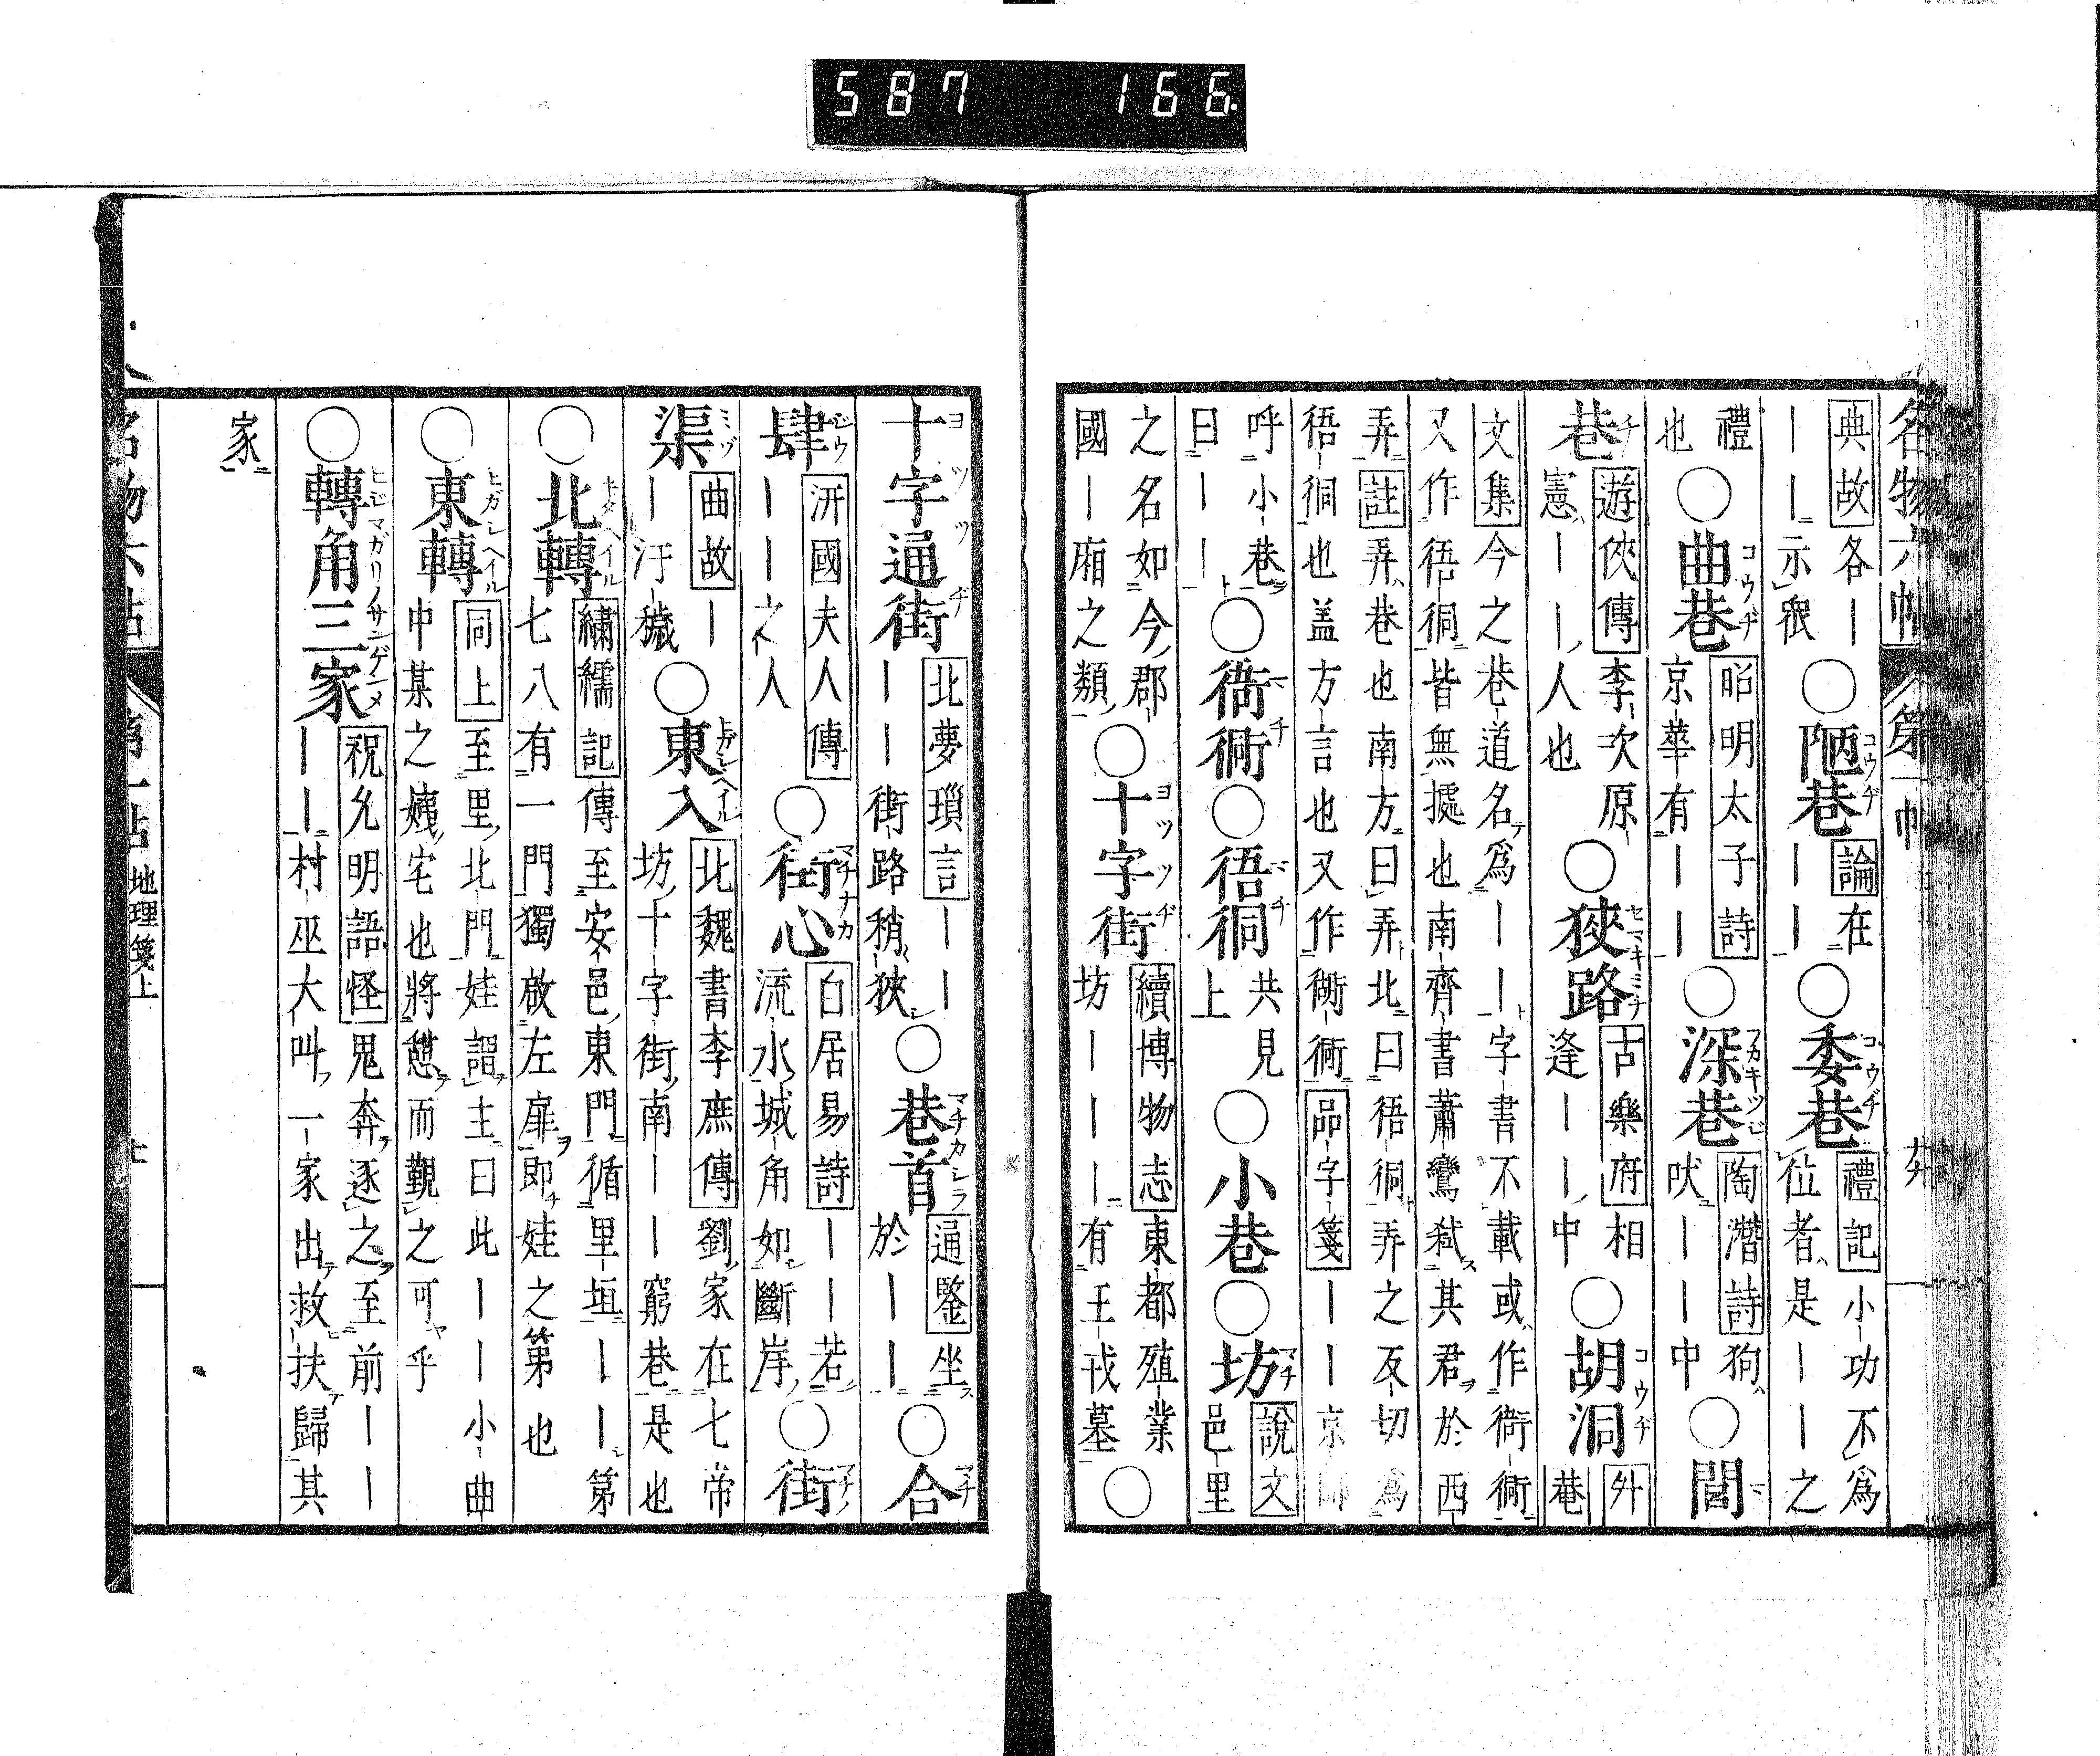 587 166
名物六帖
第一帖
典故各｜｜｜示衆○陋巷論在｜｜○委巷禮記小功不爲位者是｜｜之
禮也○曲巷昭明太子詩京華有｜｜○深巷陶潛詩狗吠｜｜中○閭
巷遊俠傳李次原憲｜｜人也○狹路古樂府相逢｜｜中○胡洞外菴
文集今之巷道名爲｜｜字書不載或作衕又作皆無據也南齊書蕭鸞弑其君於西
弄註弄巷也南方曰弄北曰弄之反切爲也盖方言也又作衕品字箋｜｜京師
呼小巷曰｜｜○衕○共見上○小巷○坊說文邑里
之名如今郡國｜廂之類○十字街續博物志東都殖業坊｜｜｜有王戎墓○
十字通街北夢瑣言｜｜｜｜街路稍狹○巷首通鑒坐於｜｜○合
肆汧國夫人傳｜｜之人○街心白居易詩｜｜若流水城角如斷岸○街
渠曲故｜｜汙穢○東入北魏書李庶傳劉家在七帝坊十字街南｜｜窮巷是也
○北轉繡繻記傳至安邑東門循里垣｜｜第七八有一門獨啟左扉即娃之第也
○東轉同上至里北門娃謂主曰此｜｜小曲中某之姨宅也將憩而觀之可乎
○轉角三家祝允明語怪鬼奔逐之至前｜｜｜｜村巫大叫一家出救扶歸其
家
地理箋上